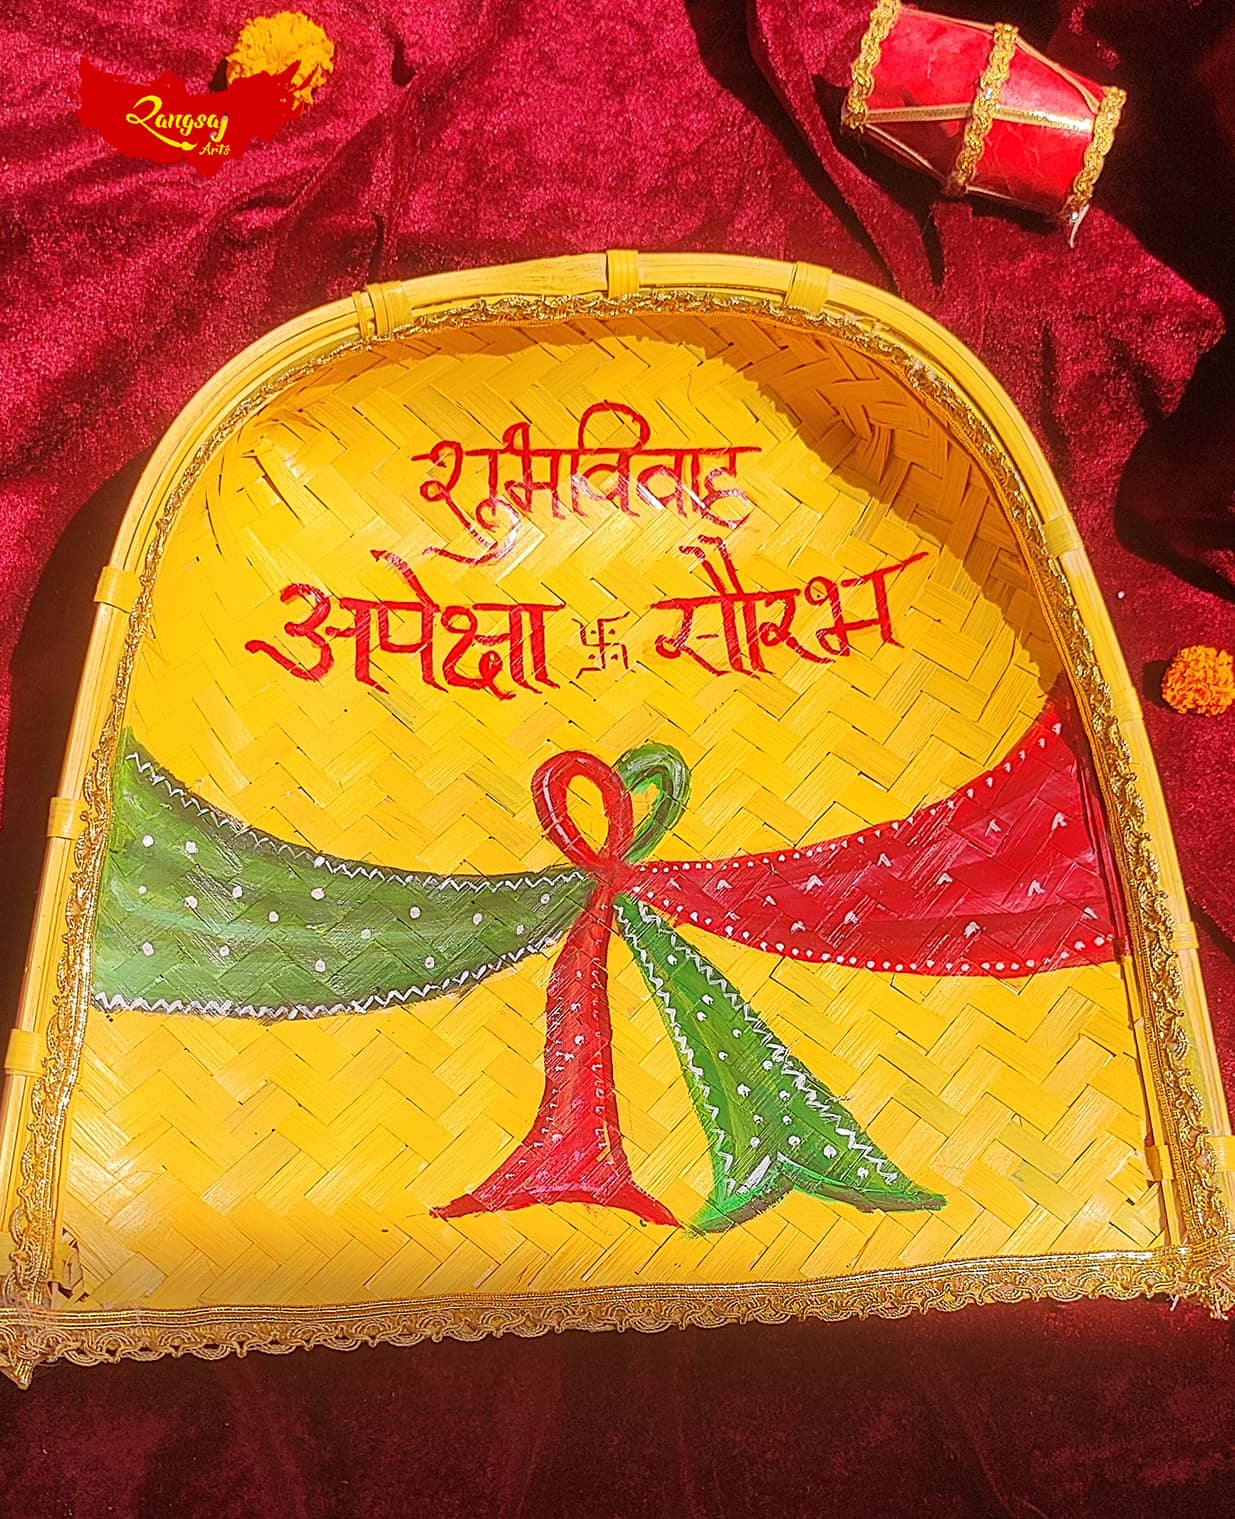 Rangsaj
Arts
शुभविवाह
अपेक्षा 卐 सौरभ